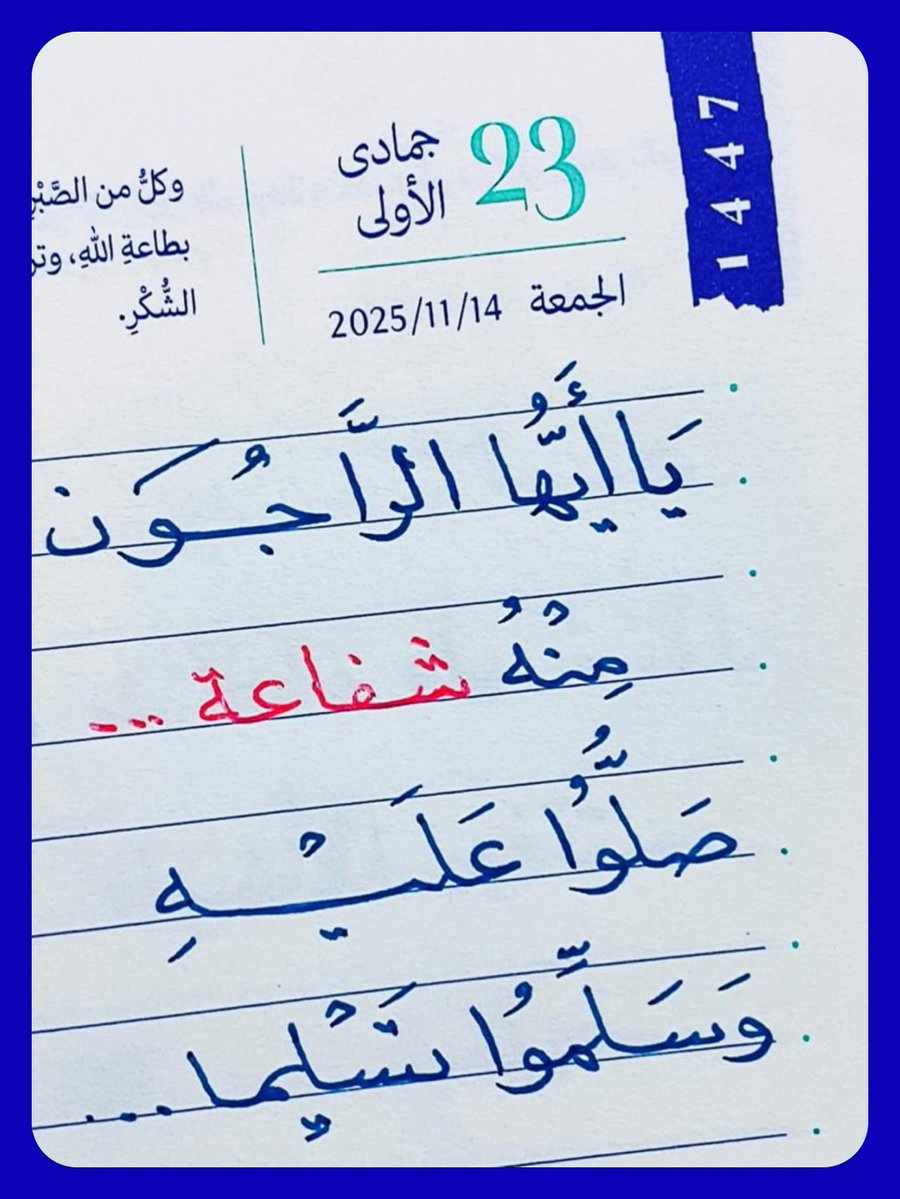 1447
23
جمادى
الأولى
الجمعة 2025/11/14
وكلُّ من الصَّبْرِ
بطاعةِ اللهِ، وتر
الشُّكْرِ.
يَا أَيُّهَا الرَّاجُونَ
مِنْهُ شفاعة ...
صَلُّوا عَلَيْهِ
وَسَلِّمُوا تَسْلِيما ...